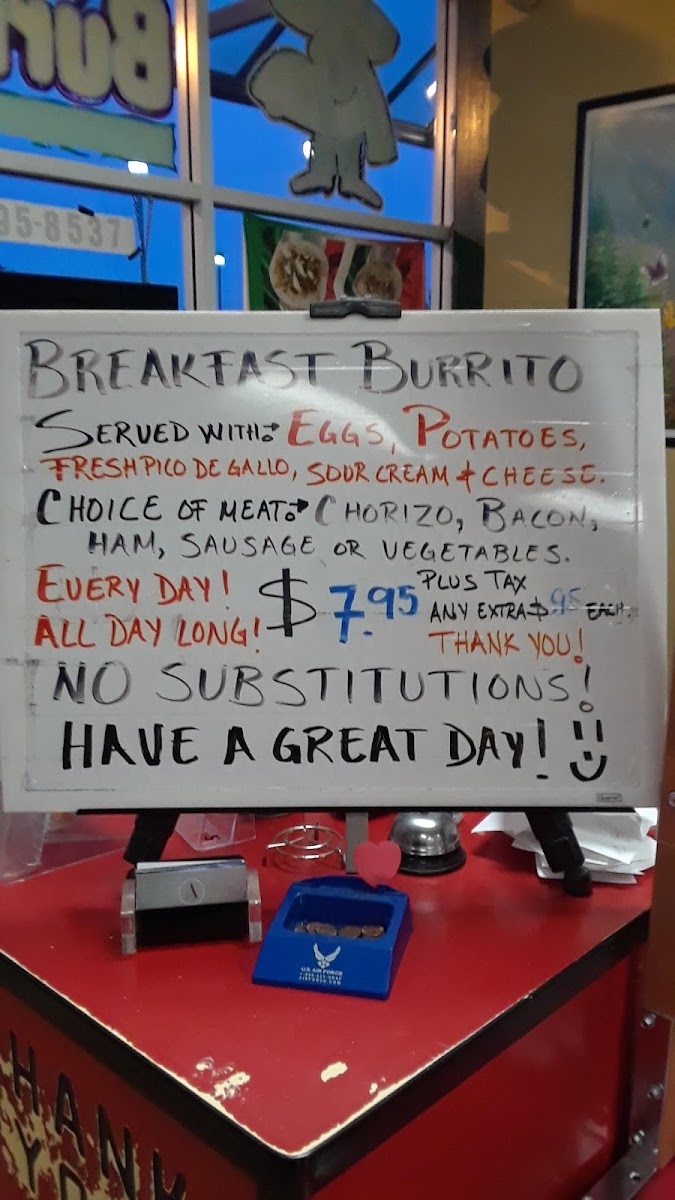 Bur
95-8537
BREAKFAST BURRITO
SERVED WITH: EGGS, POTATOES,
FRESH PICO DE GALLO, SOUR CREAM & CHEESE.
CHOICE OF MEAT: CHORIZO, BACON,
HAM, SAUSAGE OR VEGETABLES.
EVERY DAY!
ALL DAY LONG!
$7.95
PLUS TAX
ANY EXTRA $ .95 EACH.
THANK YOU!
NO SUBSTITUTIONS!
HAVE A GREAT DAY!
U.S. AIR FORCE
HANK
YO